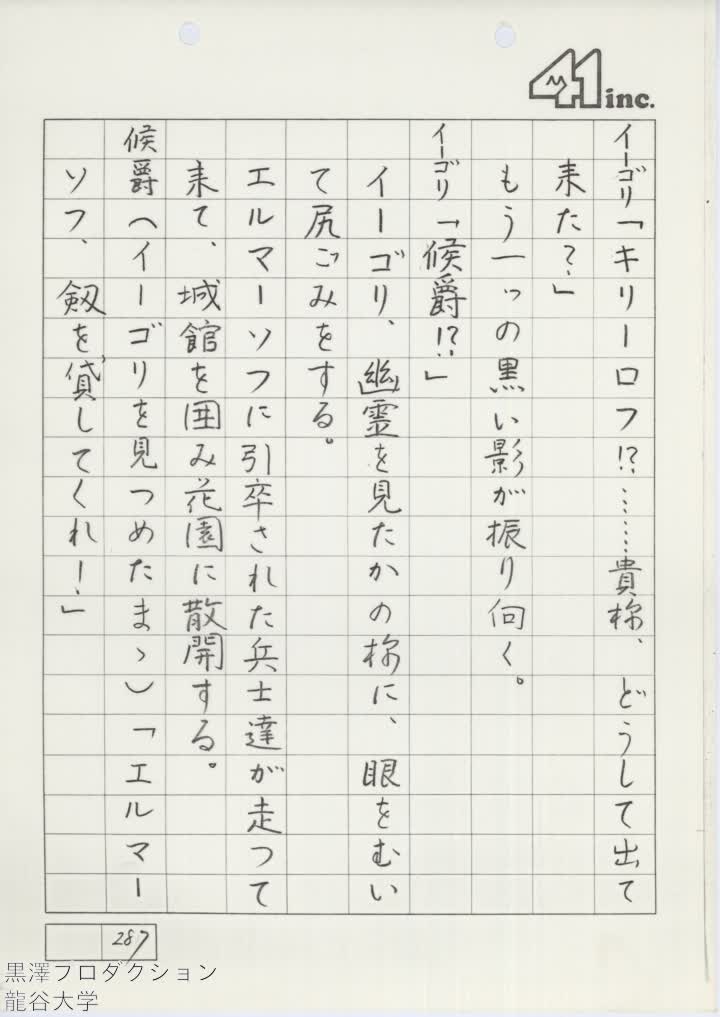 41 inc.
イーゴリ「キリーロフ!?………貴様、どうして出て
来た？」
もう一つの黒い影が振り向く。
イーゴリ「候爵!?」
イーゴリ、幽霊を見たかの様に、眼をむい
て尻ごみをする。
エルマーソフに引卒された兵士達が走つて
来て、城館を囲み花園に散開する。
候爵（イーゴリを見つめたまゝ）「エルマー
ソフ、剱を貸してくれ！」
287
黒澤プロダクション
龍谷大学